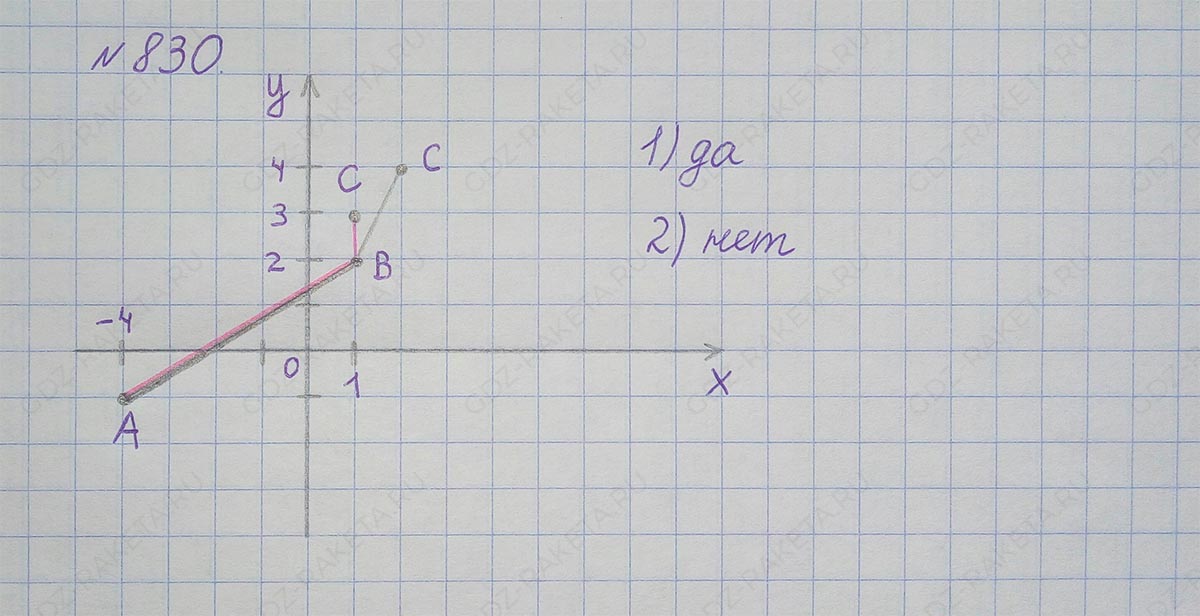 №830.
y
4 C
C
3
2 B
-4
0 1 x
A
1) да
2) нет
GDZ-RAKETA.RU